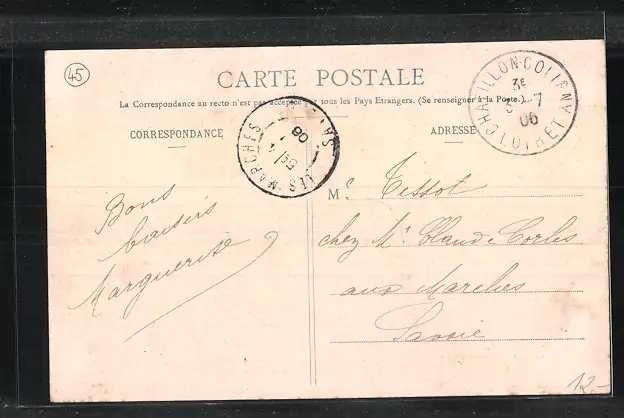 45
CARTE POSTALE
La Correspondance au recto n'est pas acceptée par tous les Pays Etrangers. (Se renseigner à la Poste.)
CORRESPONDANCE
ADRESSE
CHATILLON-COLIGNY
3E
-7
06
LOIRET
LES-MARCHES
06
Bons
baisers
Marguerite
M. Tissot
chez Mr Claude Corles
aux Marches
Savoie
12.-